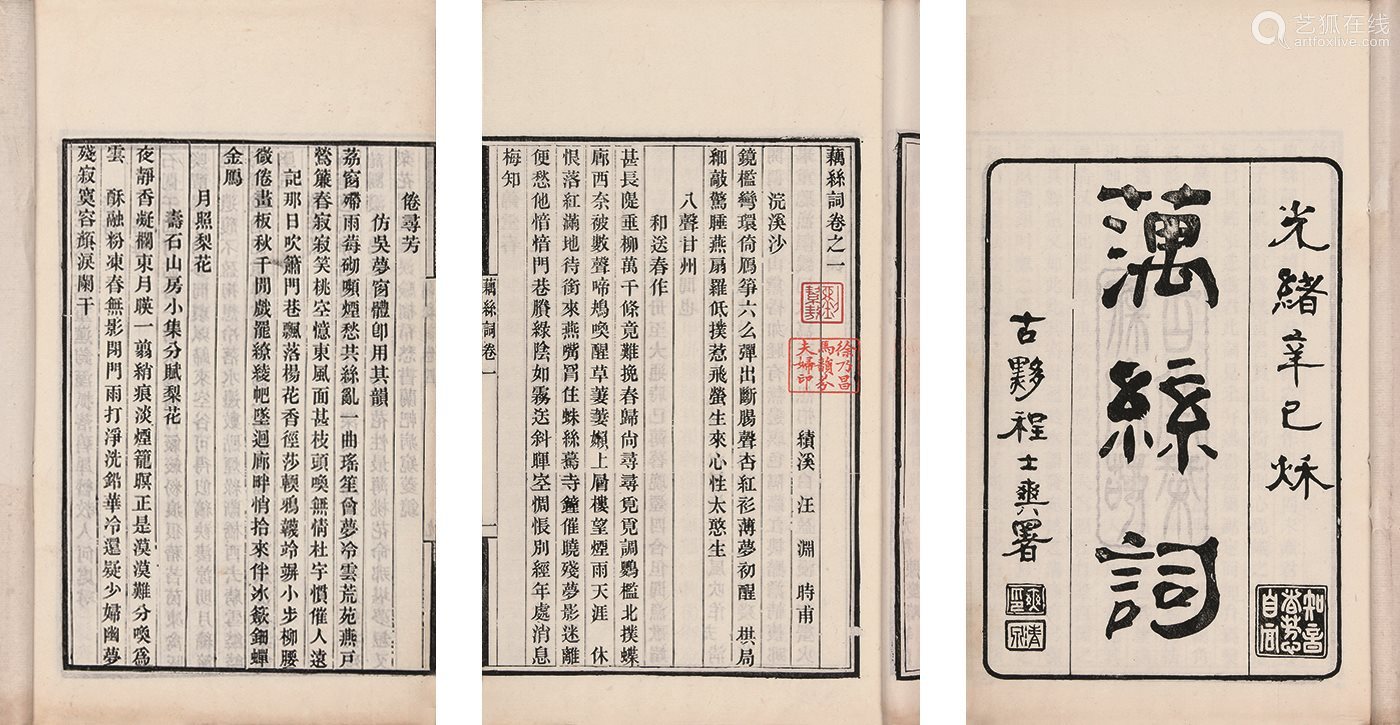 艺狐在线
artfoxlive.com
光緒辛巳秌
藕絲詞
古黟程士爽署
藕絲詞卷之一
績溪 汪淵 時甫
浣溪沙
鏡檻彎環倚鴈箏六幺彈出斷腸聲杏紅衫薄夢初醒 棋局
細敲驚睡燕扇羅低撲惹飛螢生來心性太憨生
八聲甘州
和送春作
甚長隄垂柳萬千條竟難挽春歸尙尋尋覓覓調鸚檻北撲蝶
廊西奈被數聲啼鴂喚醒草萋萋嬾上層樓望煙雨天涯 休
恨落紅滿地待銜來燕觜罥住蛛絲驀寺鐘催曉殘夢影迷離
便愁他愔愔門巷賸綠陰如霧送斜暉空惆悵別經年處消息
梅知
徐乃昌
馬韻芬
夫婦印
藕絲詞卷一
一
倦尋芳
仿吳夢窗體卽用其韻
荔窗帶雨莓砌嚬煙愁共絲亂一曲瑤笙曾夢冷雲荒苑燕戸
鶯簾春寂寂笑桃空憶東風面甚枝頭喚無情杜宇慣催人遠
記那日吹簫門巷飄落楊花香徑莎輭鴉韈竛竮小步柳腰
微倦畫板秋千閒戲罷繚綾帊墜迴廊畔悄拾來伴冰篸鈿蟬
金鴈
月照梨花
壽石山房小集分賦梨花
夜靜香凝欄東月暎一翦綃痕淡煙籠暝正是漠漠難分喚爲
雲 酥融粉凍春無影閉門雨打淨洗鉛華冷還疑少婦幽夢
殘寂寞容顔淚闌干